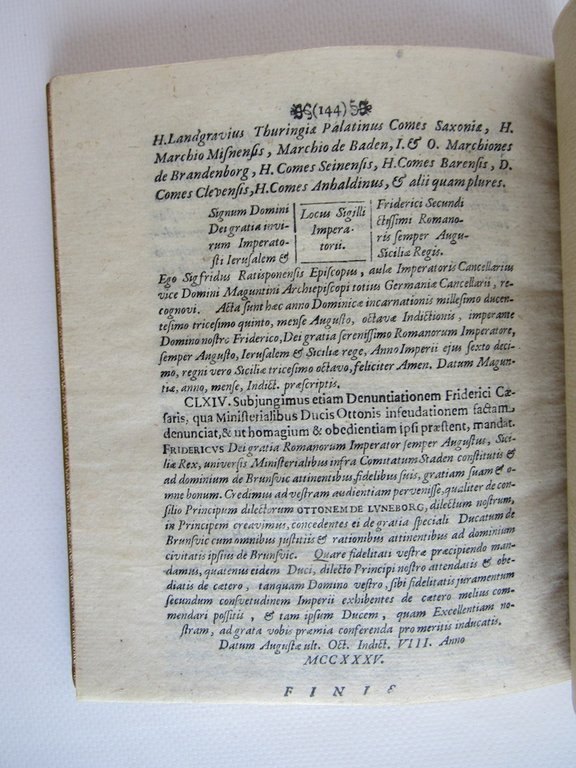 (144)
H. Landgravius Thuringiæ Palatinus Comes Saxoniæ, H.
Marchio Misnensis, Marchio de Baden, I. & O. Marchiones
de Brandenborg, H. Comes Seinensis, H. Comes Barensis, D.
Comes Clevensis, H. Comes Anhaldinus, & alii quam plures.
Signum Domini
Dei gratia invi-
rum Imperato-
sti Ierusalem &
Locus Sigilli
Impera-
torii.
Friderici Secundi
ctissimi Romano-
ris semper Augu-
Siciliæ Regis.
Ego Sigfridus Ratisponensis Episcopus, aulæ Imperatoris Cancellarius
vice Domini Maguntini Archiepiscopi totius Germaniæ Cancellarii, re-
cognovi. Acta sunt hæc anno Dominicæ incarnationis millesimo ducen-
tesimo tricesimo quinto, mense Augusto, octavæ Indictionis, imperante
Domino nostro Friderico, Dei gratia serenissimo Romanorum Imperatore,
semper Augusto, Ierusalem & Siciliæ rege, Anno Imperii ejus sexto deci-
mo, regni vero Siciliæ tricesimo octavo, feliciter Amen. Datum Magun-
tiæ, anno, mense, Indict. præscriptis.
CLXIV. Subjungimus etiam Denuntiationem Friderici Cæ-
saris, qua Ministerialibus Ducis Ottonis infeudationem factam
denunciat, & ut homagium & obedientiam ipsi præstent, mandat.
FRIDERICVS Dei gratia Romanorum Imperator semper Augustus, Sici-
liæ Rex, universis Ministerialibus infra Comitatum Staden constitutis &
ad dominium de Brunsvic attinentibus, fidelibus suis, gratiam suam & o-
mne bonum. Credimus ad vestram audientiam pervenisse, qualiter de con-
silio Principum dilectorum OTTONEM DE LVNEBORG, dilectum nostrum,
in Principem creavimus, concedentes ei de gratia speciali Ducatum de
Brunsvic cum omnibus justitiis & rationibus attinentibus ad dominium
civitatis ipsius de Brunsvic. Quare fidelitati vestræ præcipiendo man-
damus, quatenus eidem Duci, dilecto Principi nostro attendatis & obe-
diatis de cætero, tanquam Domino vestro, sibi fidelitatis juramentum
secundum consvetudinem Imperii exhibentes de cætero melius com-
mendari possitis, & tam ipsum Ducem, quam Excellentiam no-
stram, ad grata vobis præmia conferenda pro meritis inducatis.
Datum Augustæ ult. Oct. Indict. VIII. Anno
MCCXXXV.
FINIS